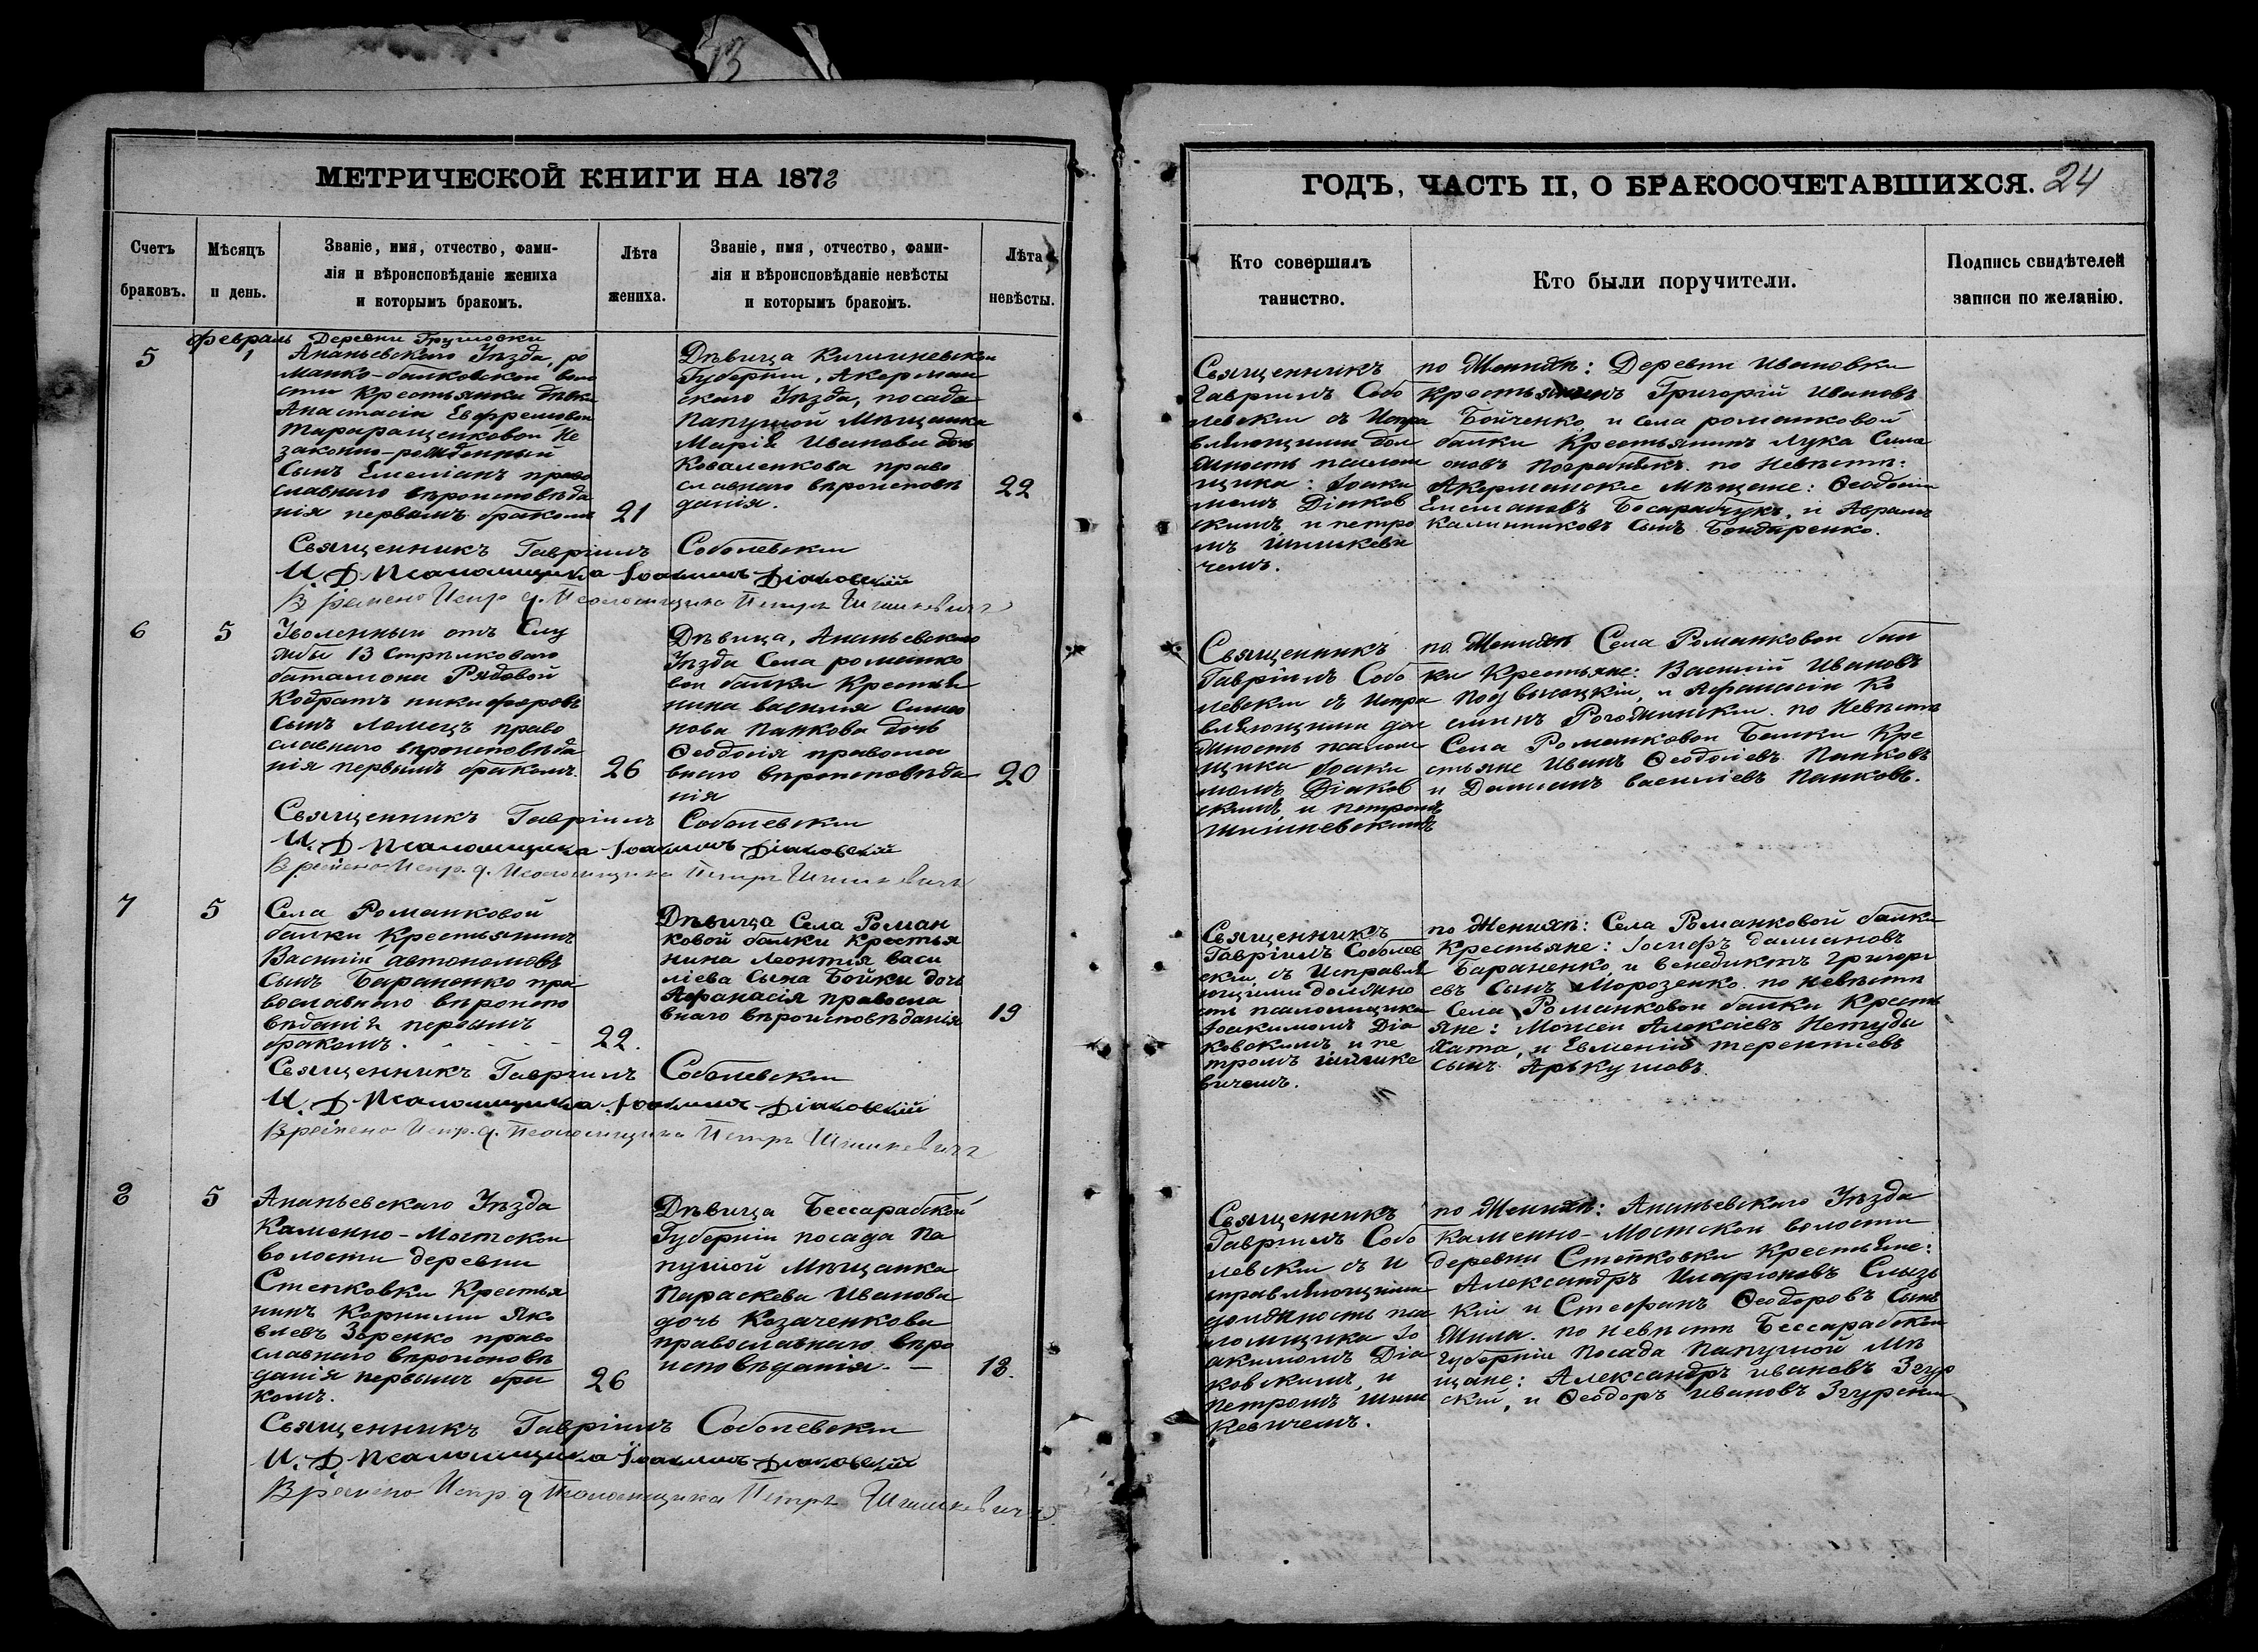 МЕТРИЧЕСКОЙ КНИГИ НА 1872
Счетъ браковъ.
Мѣсяцъ и день.
Званіе, имя, отчество, фами-
лія и вѣроисповѣданіе жениха
и которымъ бракомъ.
Лѣта жениха.
Званіе, имя, отчество, фами-
лія и вѣроисповѣданіе невѣсты
и которымъ бракомъ.
Лѣта невѣсты.
5
февраль
1
Деревни Грушовки
Ананьевскаго Уѣзда, ро
манко-балковской воло
сти Крестьянки дѣвки
Анастасіи Евфремовой
Тараращенковой Не
законно-рожденный
Сынъ Емеліанъ право
славнаго вѣроисповѣда
нія первымъ бракомъ
21
Дѣвица Кишиневской
Губерніи, Акерман
скаго Уѣзда, посада
Папушой Мѣщанка
Марія Иванова дочь
Коваленкова право
славнаго вѣроисповѣ
данія.
22
Священникъ Гавріилъ Соболевскій
И. Д. Псаломщика Іоакимъ Діаковскій
Времено Испр. д. Псаломщика Петръ Шишкевичъ
6
5
Уволенный отъ Слу
жбы 13 Стрѣлковаго
баталіона Рядовой
Кодратъ Никифоровъ
сынъ Ломецъ право
славнаго вѣроисповѣда
нія первымъ бракомъ.
26
Дѣвица, Ананьевскаго
Уѣзда Села романко
вой балки Крестья
нина василія Симео
нова Панкова дочь
Ѳеодосія правосла
внаго вѣроисповѣда
нія
20
Священникъ Гавріилъ Соболевскій
И. Д. Псаломщика Іоакимъ Діаковскій
Времено Испр. д. Псаломщика Петръ Шишкевичъ
7
5
Села Романковой
балки Крестьянинъ
Василій Автономовъ
Сынъ Бараненко пра
вославнаго вѣроиспо
вѣданія первымъ
бракомъ.
22.
Дѣвица Села Роман
ковой балки Крестья
нина Леонтія васи
ліева Сына Бойки дочь
Афанасія правосла
внаго вѣроисповѣданія
19
Священникъ Гавріилъ Соболевскій
И. Д. Псаломщика Іоакимъ Діаковскій
Времено Испр. д. Псаломщика Петръ Шишкевичъ
8
5
Ананьевскаго Уѣзда
Каменно-Мостской
волости деревни
Степковки Крестья
нинъ Корнилій Яко
влевъ Зоренко право
славнаго вѣроисповѣ
данія первымъ бра
комъ.
26
Дѣвица Бессарабской
Губерніи посада Па
пушой Мѣщанка
Параскева Иванова
дочь Козаченкова
православнаго вѣро
исповѣданія. —
18.
Священникъ Гавріилъ Соболевскій
И. Д. Псаломщика Іоакимъ Діаковскій
Времено Испр. д. Псаломщика Петръ Шишкевичъ
ГОДЪ, ЧАСТЬ II, О БРАКОСОЧЕТАВШИХСЯ. 24
Кто совершалъ таинство.
Кто были поручители.
Подпись свидѣтелей
записи по желанію.
Священникъ
Гавріилъ Собо
левскій съ Испра
вляющими дол
жность псалом
щика: Іоаки
момъ Діаков
скимъ и петро
мъ Шишкеви
чемъ.
по Женихѣ: Деревни Ивановки
Крестьянинъ Григорій Ивановъ
Бойченко, и Села романковой
балки Крестьянинъ Лука Симе
оновъ Погребнякъ. по Невѣстѣ:
Акерманскіе Мѣщане: Ѳеодосій
Емеліановъ Босарабчукъ, и Аврамъ
Калинниковъ Сынъ Бондаренко.
Священникъ
Гавріилъ Собо
левскій съ Испра
вляющими дол
жность псалом
щика Іоаки
момъ Діаков
скимъ, и петромъ
Шишкевскимъ
по Женихѣ Села Романковой бал
ки Крестьяне: Василій Ивановъ
Подвысоцкій, и Афанасій Ко
по Невѣстѣ
Села Романковой Балки Кре
стьяне Иванъ Ѳеодосіевъ Панковъ
и Даміанъ василіевъ Панковъ.
Священникъ
Гавріилъ Соболев
скій съ Исправля
ющими должно
сть псаломщика
Іоакимомъ Діа
ковскимъ и пе
тромъ Шишке
вичемъ.
по Женихѣ: Села Романковой балки
Крестьяне: Іосифъ даміановъ
Бараненко, и Венедиктъ Григорі
евъ Сынъ Морозенко. по Невѣстѣ
Села Романковой балки Кресть
яне: Моисей Алексіевъ Нетуды
Хата, и Евменій Терентіевъ
сынъ Аркушовъ.
Священникъ
Гавріилъ Собо
левскій съ И
справляющими
должность пса
ломщика Іо
акимомъ Діа
ковскимъ, и
Петромъ Шиш
кевичемъ.
по Женихѣ: Ананьевскаго Уѣзда
Каменно-Мостской волости
деревни Степковки Крестьяне:
Александръ Иларіоновъ Слизь
кій и Стефанъ Ѳеодоровъ Сынъ
Жила. по невѣстѣ Бессарабской
Губерніи Посада Папушой Мѣ
щане: Александръ ивановъ Згур
скій, и Ѳеодоръ Ивановъ Згурскій